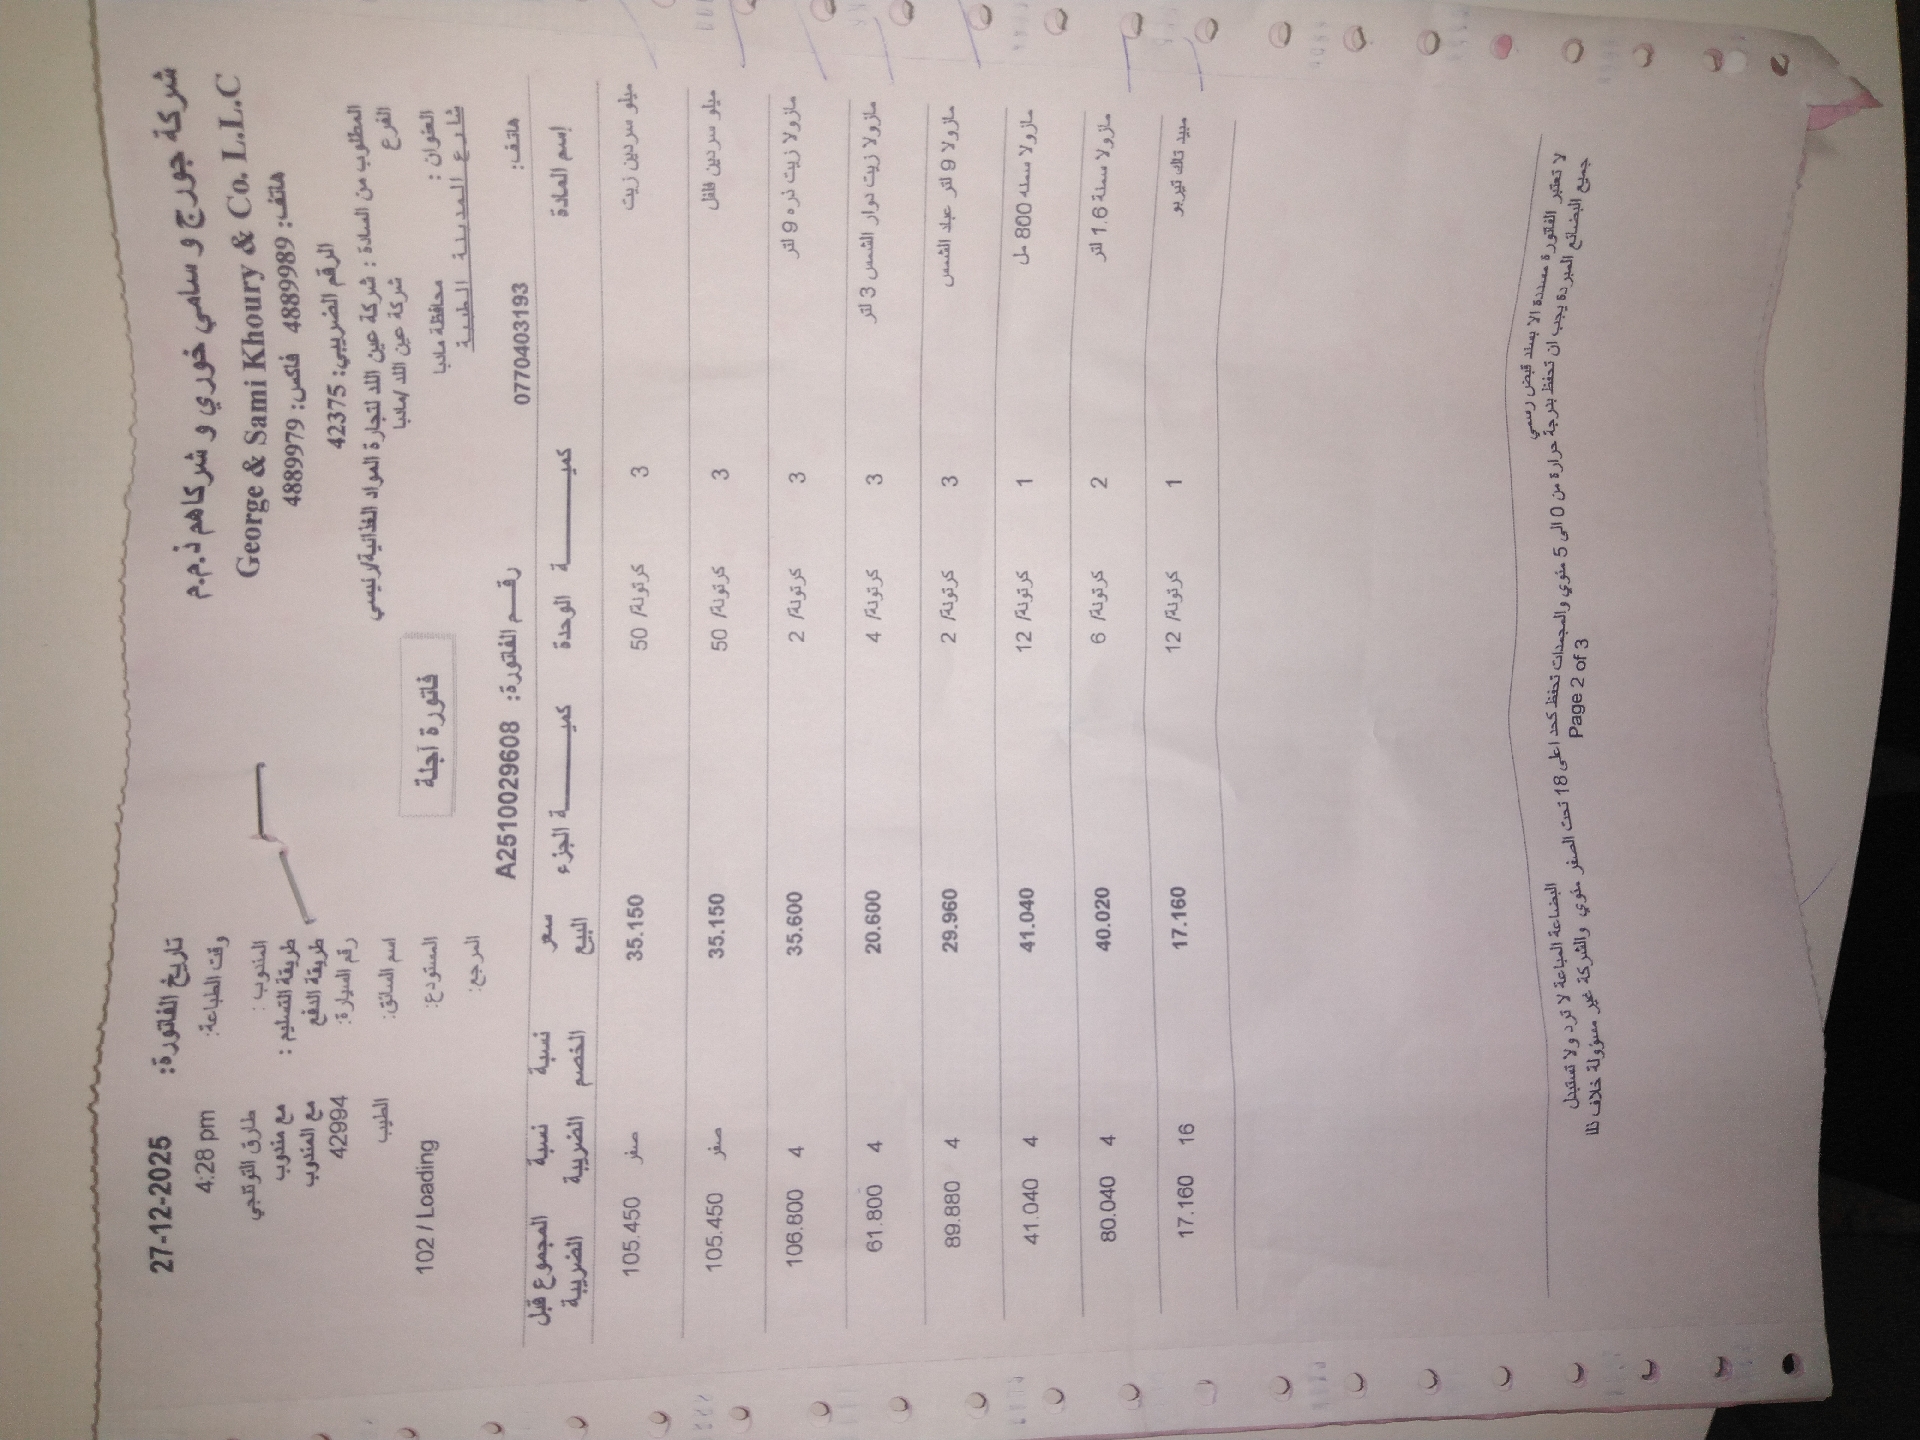 شركة جورج و سامي خوري و شركاهم ذ.م.م
George & Sami Khoury & Co. L.L.C
هاتف: 4889989 فاكس: 4889979
الرقم الضريبي: 42375
المطلوب من السادة : شركة عين اللد لتجارة المواد الغذائية/رئيسي
الفرع شركة عين اللد /مادبا
العنوان : محافظة مادبا
شارع المدينة الطبية
هاتف: 0770403193
تاريخ الفاتورة: 27-12-2025
وقت الطباعة: 4:28 pm
المندوب : طارق التوتلجي
طريقة التسليم : مع مندوب
طريقة الدفع مع المندوب
رقم السيارة: 42994
اسم السائق: الطيب
المستودع: 102 / Loading
المرجع:
فاتورة آجلة
رقم الفاتورة: A2510029608
إسم المادة كميـــة الوحدة كميـــة الجزء سعر البيع نسبة الخصم نسبة الضريبة المجموع قبل الضريبة
ميلو سردين زيت 3 كرتونة/ 50 35.150 صفر 105.450
ميلو سردين فلفل 3 كرتونة/ 50 35.150 صفر 105.450
مازولا زيت ذره 9 لتر 3 كرتونة/ 2 35.600 4 106.800
مازولا زيت دوار الشمس 3 لتر 3 كرتونة/ 4 20.600 4 61.800
مازولا 9 لتر عباد الشمس 3 كرتونة/ 2 29.960 4 89.880
مازولا سمنه 800 مل 1 كرتونة/ 12 41.040 4 41.040
مازولا سمنة 1.6 لتر 2 كرتونة/ 6 40.020 4 80.040
مبيد تاك تيربو 1 كرتونة/ 12 17.160 16 17.160
لا تعتبر الفاتورة مسددة الا بسند قبض رسمي
البضاعة المباعة لا ترد ولا تستبدل
جميع البضائع المبردة يجب ان تحفظ بدرجة حرارة من 0 الى 5 مئوي والمجمدات تحفظ كحد اعلى 18 تحت الصفر مئوي والشركة غير مسؤولة خلاف ذلك
Page 2 of 3